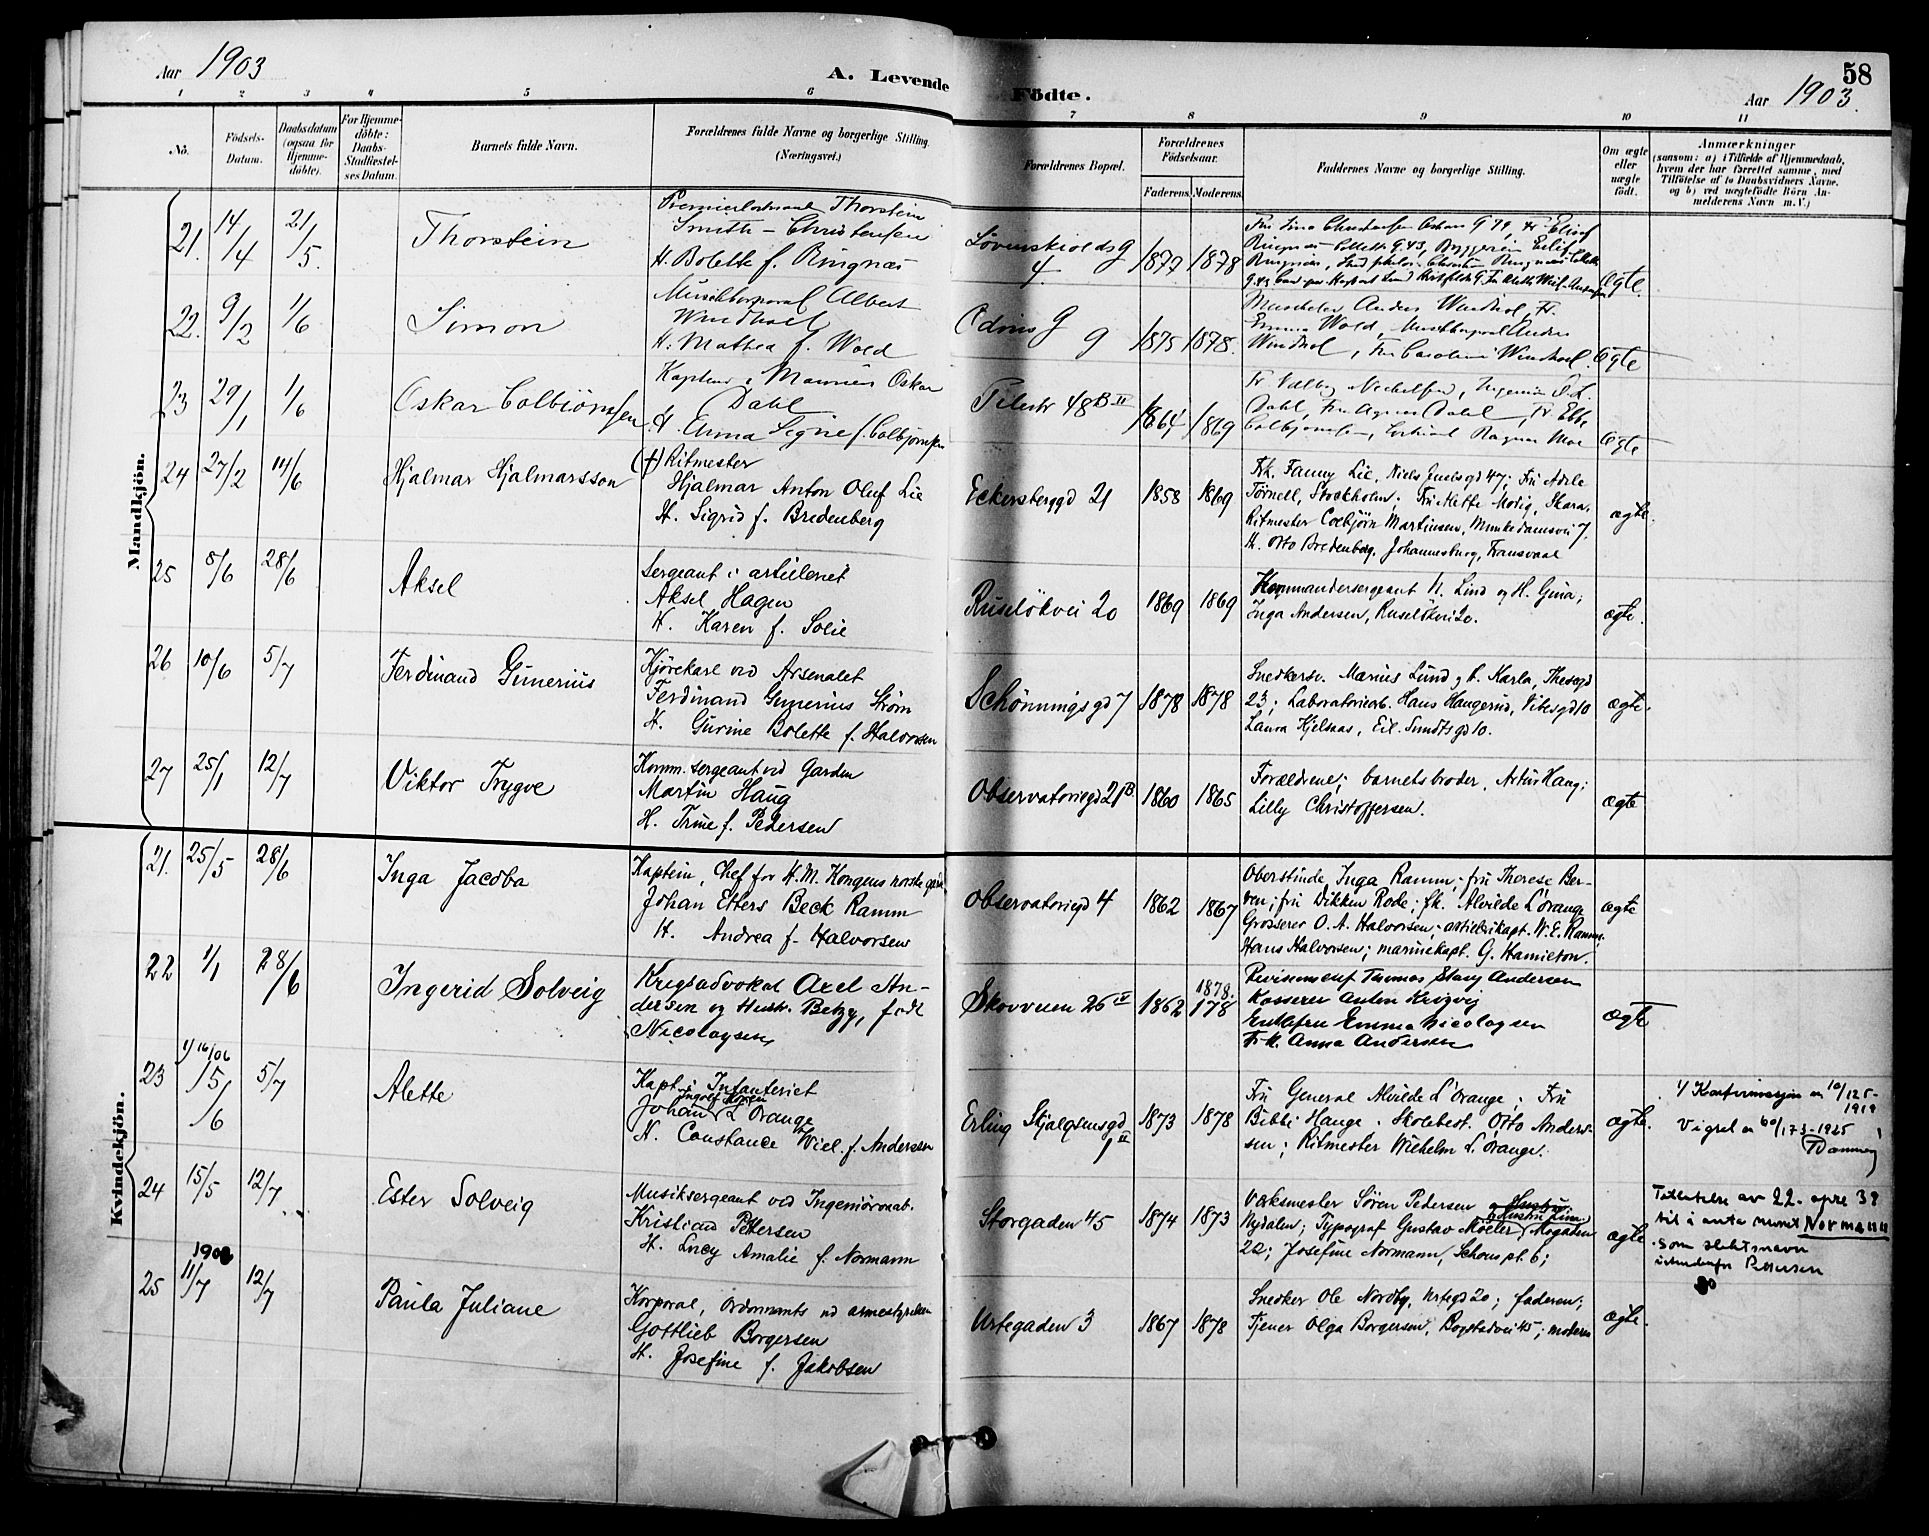 Aar 1903
A. Levende Fødte.
58
Aar 1903.
1 2 3 4 5 6 7 8 9 10 11
No.
Fødsels-
Datum.
Daabsdatum
(ogsaa for
Hjemme-
døbte).
For Hjemme-
døbte:
Daabs-
Stadfæstel-
ses Datum.
Barnets fulde Navn.
Forældrenes fulde Navne og borgerlige Stilling.
(Næringsvei.)
Forældrenes Bopæl.
Forældrenes
Fødselsaar.
Faderens. Moderens.
Faddernes Navne og borgerlige Stilling.
Om ægte
eller
uægte
født.
Anmærkninger
(saasom: a) i Tilfælde af Hjemmedaab,
hvem der har forrettet samme, med
Tilføielse af to Daabsvidners Navne,
og b) ved uægtefødte Børn An-
melderens Navn m. V.)
Mandkjön.
21. 14/4 21/5.
Thorstein
Premierløitnant Thorstein
Smith-Christensen
H. Bolette f. Ringnæs
Løvenskioldsg
4.
1877 1878
ægte.
22. 9/2 1/6
Simon
Albert
Windhol
H. Mathea f. Wold
Odins G
9
1875 1878.
Anders Windhol, Fr.
Emma Wold, Anders
Windhol, Fru Caroline Windhol.
ægte
23 29/1 1/6
Oskar Colbjörnsen
Kaptein i Marinen Oskar
Dahl
H. Anna Signe f. Colbjørnsen
Pilestr 48 B II
1864 1869
Dahl, Fru Agnes Dahl, Fr. Ebba
Colbjørnsen, Ragnar Moe
ægte
24 27/2 14/6
Hjalmar Hjalmarsson
(+) Ritmester
Hjalmar Anton Oluf Lie
H. Sigrid f. Bredenberg
Eckersberggd 21
1858 1869
Frk. Fanny Lie, Niels Juelsgd 47; Fru Adele
Törnell, Stockholm; Fru Mette Modig, Skara.
Ritmester Coebjörn Martinsen, Munkedamsvei 7.
H. Otto Bredenberg, Johannesburg, Transvaal
ægte.
25 8/6 28/6
Aksel
Sergeant i artilleriet
Aksel Hagen
H. Karen f. Solie
Ruselökvei 20
1869 1869
Kommandersergeant H. Lind og H. Gina;
Inga Andersen, Ruselökvei 20.
ægte.
26 10/6 5/7
Ferdinand Gunerius
Kjørekarl ved Arsenalet
Ferdinand Gunerius Strøm
H. Gurine Bolette f. Halvorsen
Schönningsgd 7
1878 1878
Snedkersv. Marius Lund og h. Karla, Thesegd
23; Laboratoriearb. Hans Haugerud, Vibesgd 10
Laura Kjelsaas, Eil. Sundtsgd 10.
ægte.
27 25/1 12/7
Viktor Trygve
Komm. sergeant ved Garden
Martin Haug
H. Trine f. Pedersen
Observatoriegd 21 B.
1860 1865
Forældrene; barnets broder, Artur Haug;
Lilly Christoffersen.
ægte
Kvindekjön.
21. 25/5 28/6
Inga Jacoba
Kaptein, Chef for H. M. Kongens norske garde
Johan Ellers Beck Ramm
H. Andrea f. Halvorsen
Observatoriegd 4
1862 1867
Oberstinde Inga Ramm; fru Therese Ber-
ven; fru Dikken Rode; fk. Alvilde L'orange
Grosserer O. A. Halvorsen; artillerikapt. W. E. Ramm.
Hans Halvorsen; marinekapt. G. Hamilton.
ægte
22 1/1 28/6
Ingerid Solveig
Krigsadvokat Axel An-
dersen og Hustr. Betzy, født
Nicolaysen
Skovveien 26 IV
1862 178 1878.
Revisionschef Thomas Stang Andersen
Kasserer Anton Krizvig
Enkefru Emma Nicolaysen
Frk. Anna Andersen
ægte
23 1/16/06 15/6 5/7
Alette
Kapt. i Infanteriet
Johan Ingolf Koren L'Orange
H. Constance Wiel f. Anderssen
Erling Skjalgsønsgd
1 II
1873 1878
Fru General Alvilde L'orange; Fru
Bibbi Hauge; Skolebest. Otto Anders-
sen; Ritmester Wilhelm L'orange.
ægte.
1/ Konfirmasjon 10/125-
1919
Vigsel 60/173-1925
24 15/5 12/7
Ester Solveig
Musiksergeant ved Ingeniørvaab.
Kristian Pettersen
H. Lucy Amalie f. Normann
Storgaden 45
1874 1873
Værksmester Sören Pedersen og Hustru,
Nydalen; Typograf Gustav Møller, Møgaden
22; Josefine Normann, Schouspl. 6;
ægte
Tillatelse av 22. apr. 38
til å anta navnet Normann
som slektsnavn
istedenfor Pettersen
25 1903 11/7 12/7
Paula Juliane
Korporal, Ordonnants ved armestyrelsen
Gottlieb Borgersen
H. Josefine f. Jakobsen
Urtegaden 3
1867 1878
Snedker Ole Nordby, Urtegd 20; faderen;
Tjener Olga Borgersen, Bogstadvei 45; moderen
ægte.